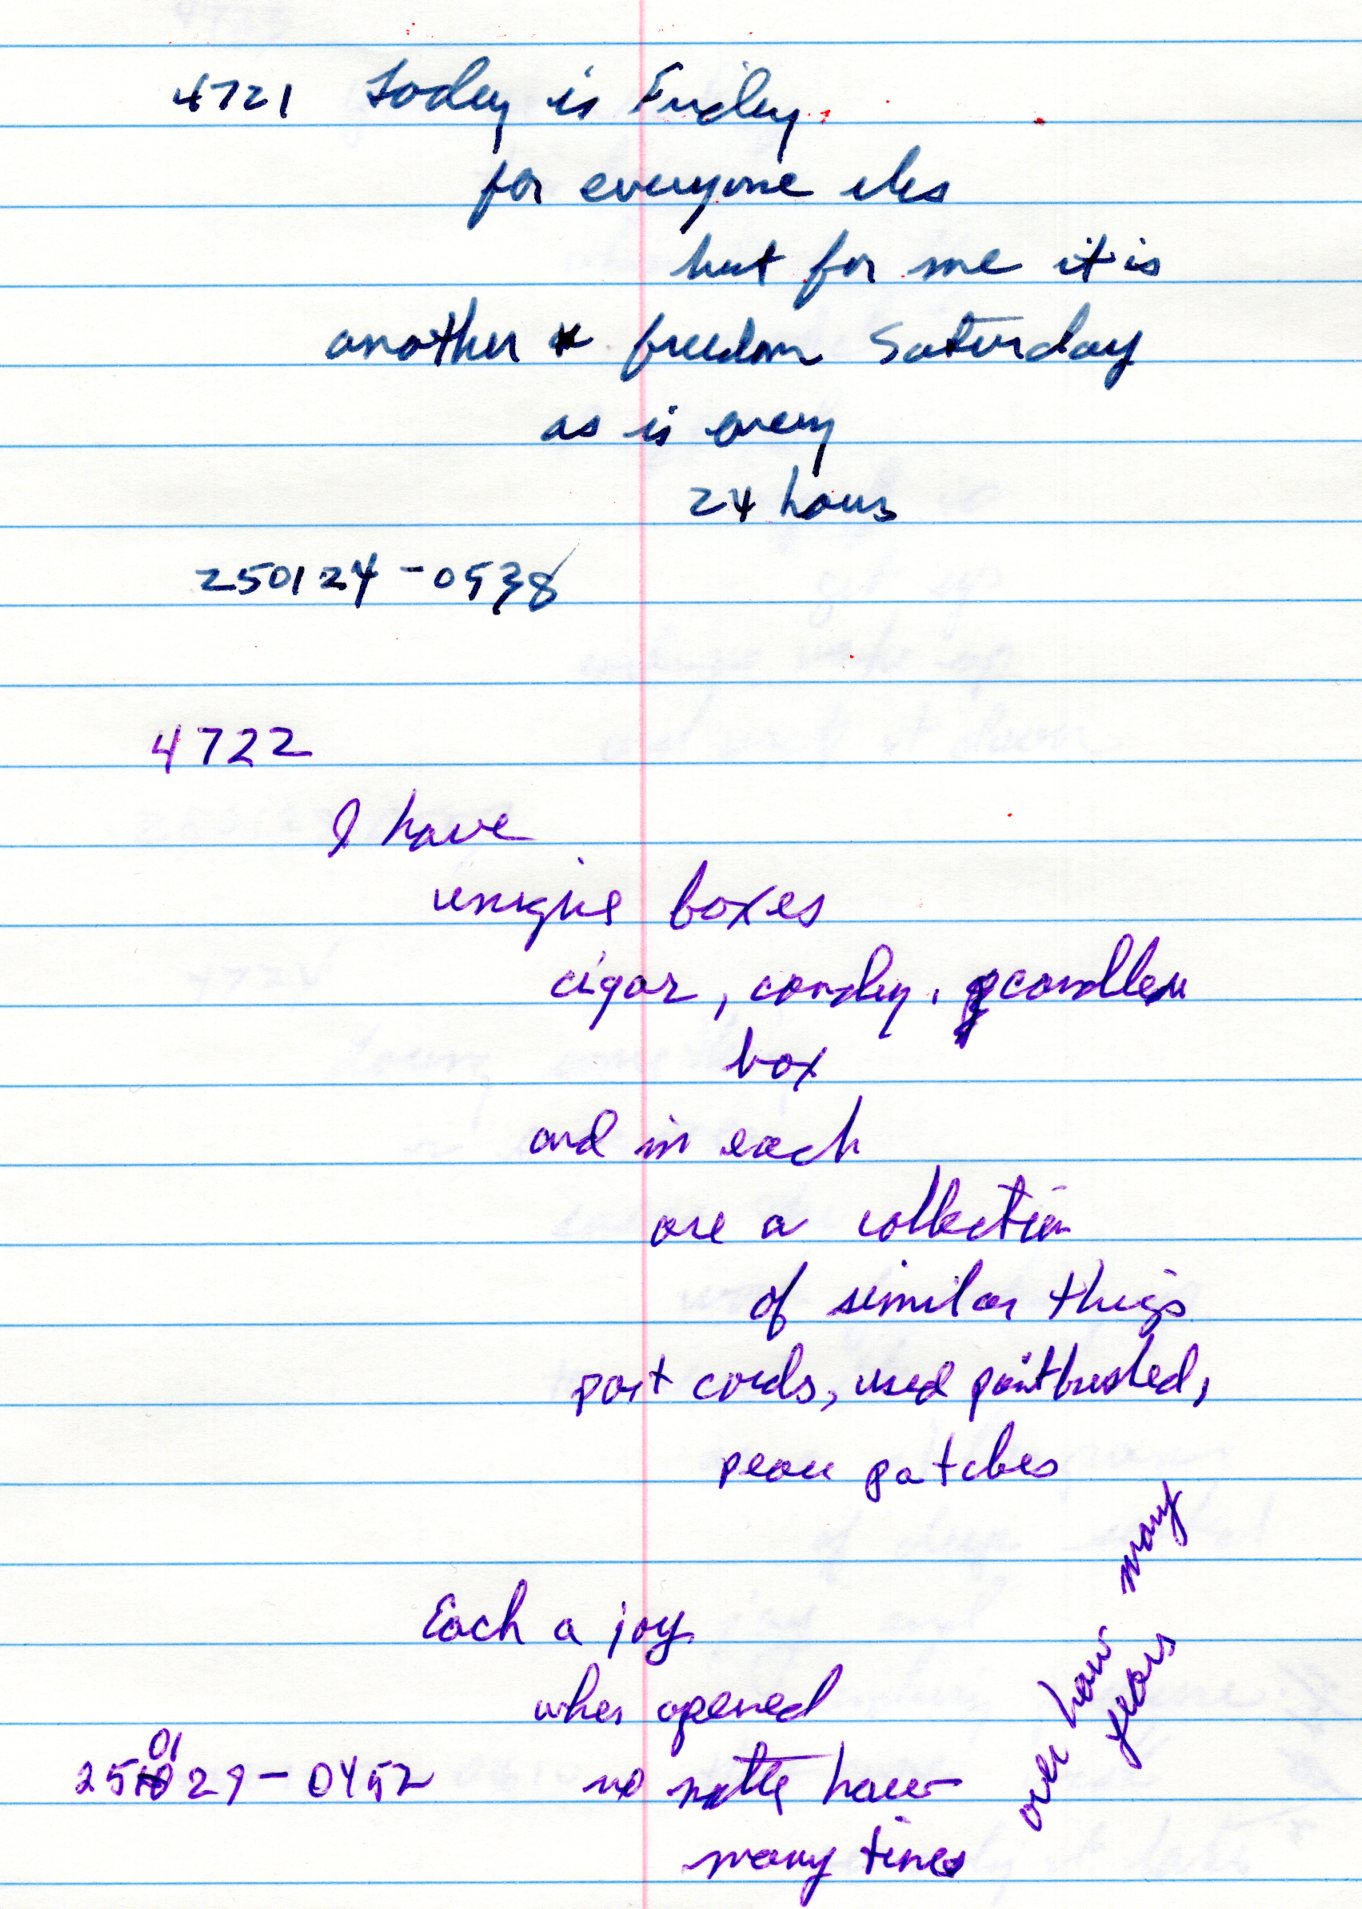 4721 Today is Friday
for everyone els
but for me it is
another freedom Saturday
as is every
24 hours
250124-0538
4722
I have
unique boxes
cigar, candy,
box
and in each
are a collection
of similar things
post cards, used
patches
Each a joy
when opened
250129-0452 no matter how
many times
over how many
years